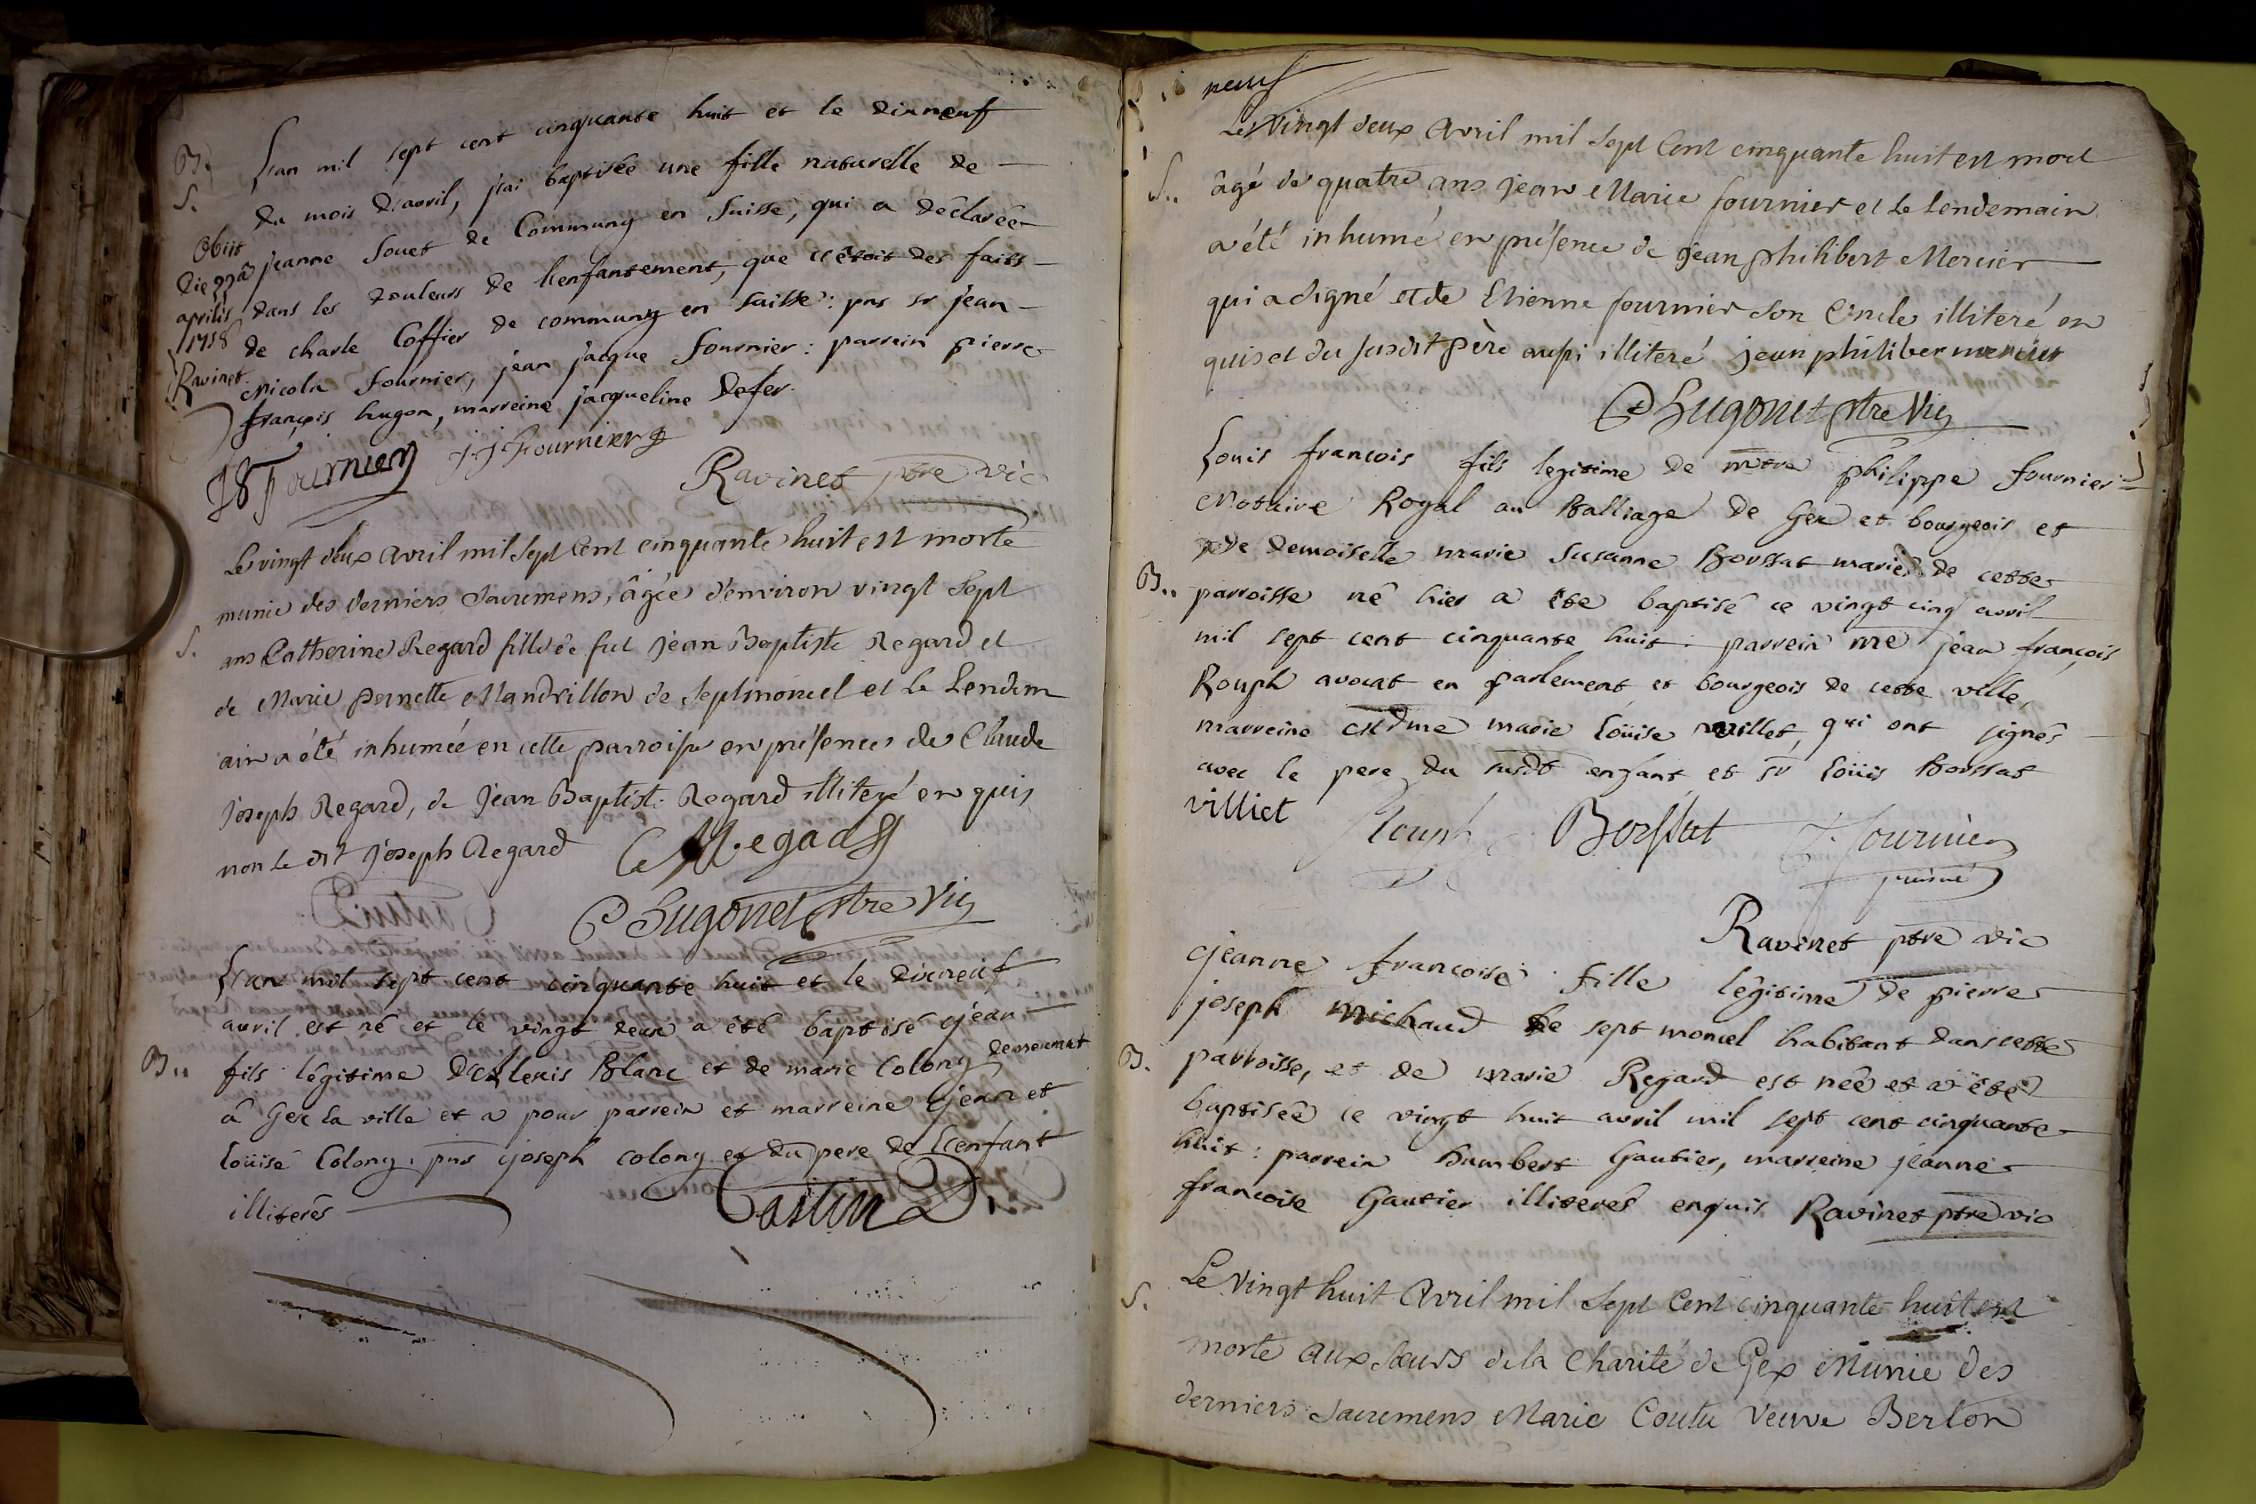 B.
S.
L'an mil sept cent cinquante huit et le dixneuf
du mois d'avril, j'ai baptisée une fille naturelle de
jeanne Souet de Commugny en Suisse, qui a déclarée
dans les douleurs de l'enfantement, que c'étoit des faits
de charle Coffier de commugny en suisse : pns sr jean
Nicola fournier, jean jacque fournier : parrein pierre
françois hugon, marreine jacqueline Defer.
Obiit
die 22â
aprilis
1758
Ravinet
JN Fournier J J Fournier
Ravinet ptre vic
Le vingt deux avril mil Sept Cent cinquante huit est morte
munie des derniers Sacremens, âgée d'environ vingt Sept
S.
ans Catherine Regard fille de fut Jean Baptiste Regard et
de Marie pernette Mandrillon de Septmoncel et le Lendem
ain a été inhumée en cette parroisse en présences de Claude
Joseph Regard, de Jean Baptist. Regard illiteré enquis
non le dit Joseph Regard C J Regad
C Hugonet ptre Vic
L'an mil sept cent cinquante huit et le dixneuf
avril est né et le vingt deux a été baptisé jean
B..
fils légitime d'alexis Blanc et de marie Colony demeurant
à Gex la ville et a pour parrein et marreine jean et
loüise Colony. pns joseph colony et du pere de l'enfant
illiterés
Castin D.
neuf
Le Vingt deux Avril mil Sept Cent cinquante huit est mort
S..
âgé de quatre ans jean Marie fournier et le Lendemain
a été inhumé en présence de Jean philibert Mercier
qui a signé et de Etienne fournier son Oncle illiteré en
quis et du susdit père aussi illiteré jean philiber mercier
C Hugonet ptre Vic
Louis françois fils legitime de mtre philippe fournier
Notaire Royal au Balliage de Gex et bourgeois et
de demoiselle marie Susanne Borssat mariés de cette
B..
parroisse né hier a été baptisé ce vingt cinq avril
mil sept cent cinquante huit : parrein mre jean françois
Rouph avocat en parlement et bourgeois de cette ville,
marreine Mdme marie loüise willet, qui ont signés
avec le pere du susdt enfant et sr loüis Borssat
villiet Rouph Borssat Fournier
puisné
Ravinet ptre vic
jeanne francoise fille légitime de pierre
joseph michaud de sept moncel habitant dans cette
B.
parroisse, et de marie Regard est née et a été
baptisée ce vingt huit avril mil sept cent cinquante
huit : parrein humbert Gautier, marreine jeanne
francoise Gautier illiterés enquis Ravinet ptre vic
S.
Le Vingt huit Avril mil Sept Cent cinquante huit est
morte aux Sœurs de la Charité de Gex Munie des
derniers Sacremens Marie Coutu Veuve Berlon